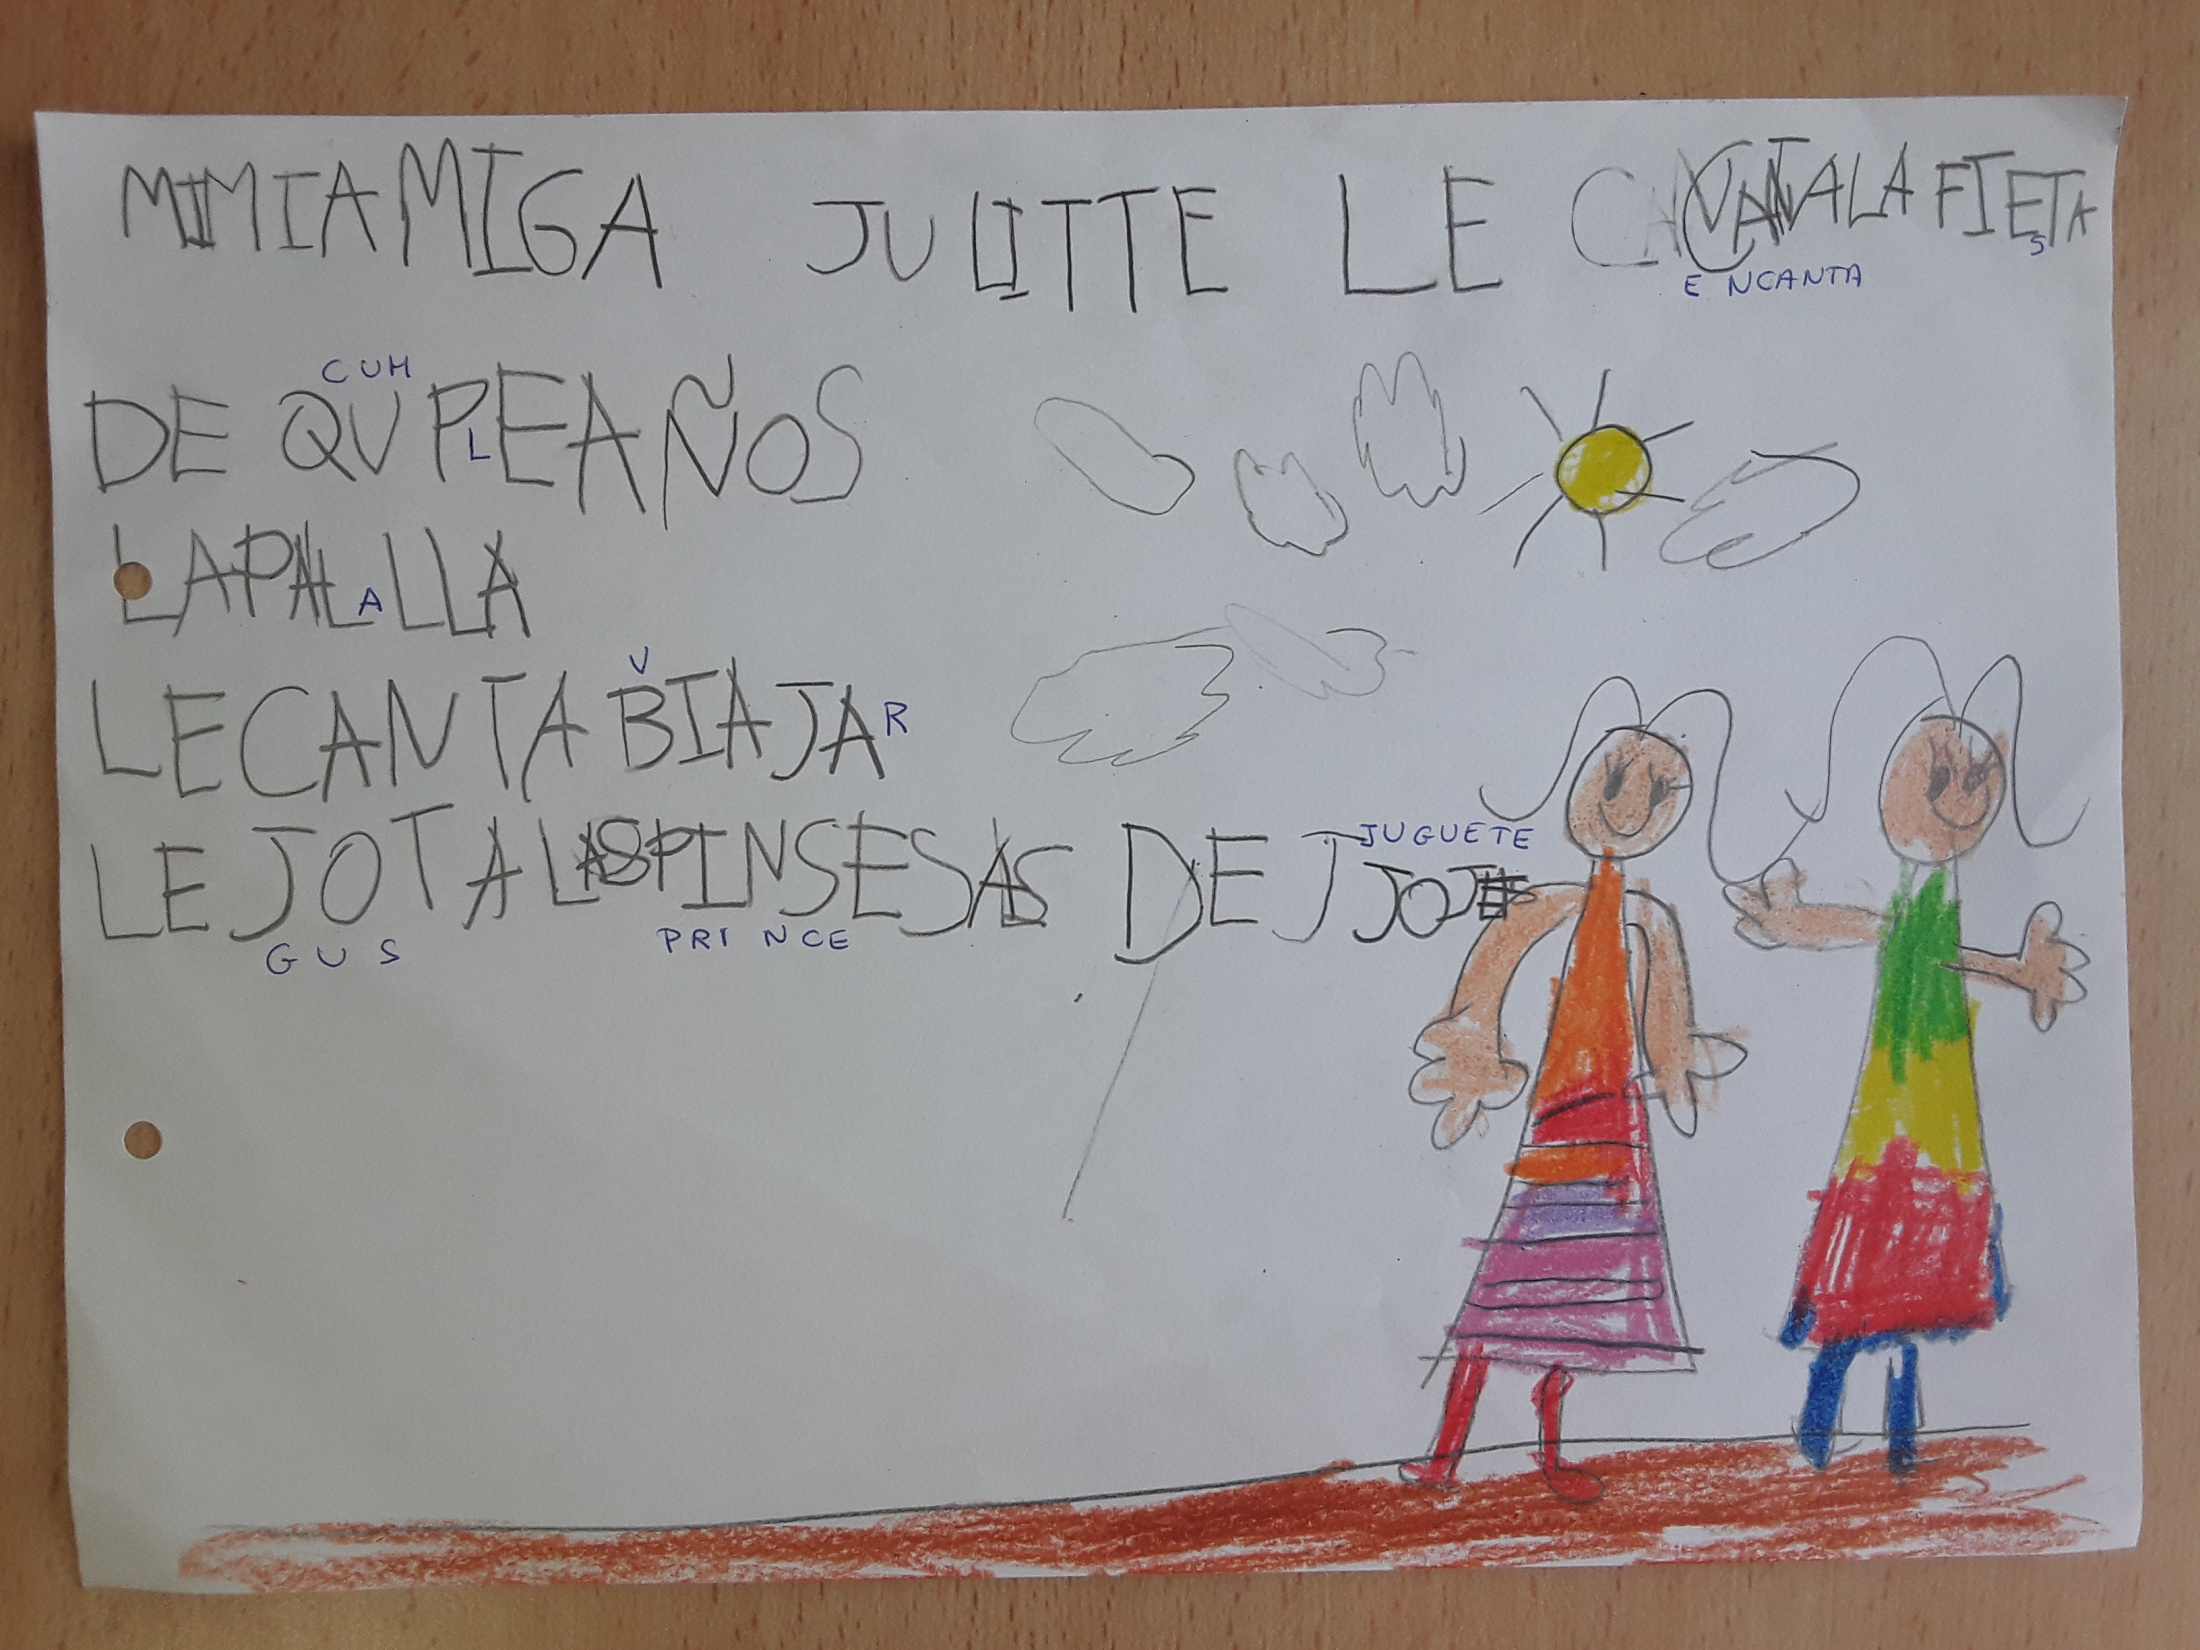 MIMIAMIGA JULITTE LE CANTALA FIESTA
S
E NCANTA
CUM
DE QUPLEAÑOS
LAPALALLA
V
LECANTA BIAJAR
JUGUETE
LE JOTA LAS PINSESAS DE J JOJ
GUS PRINCE